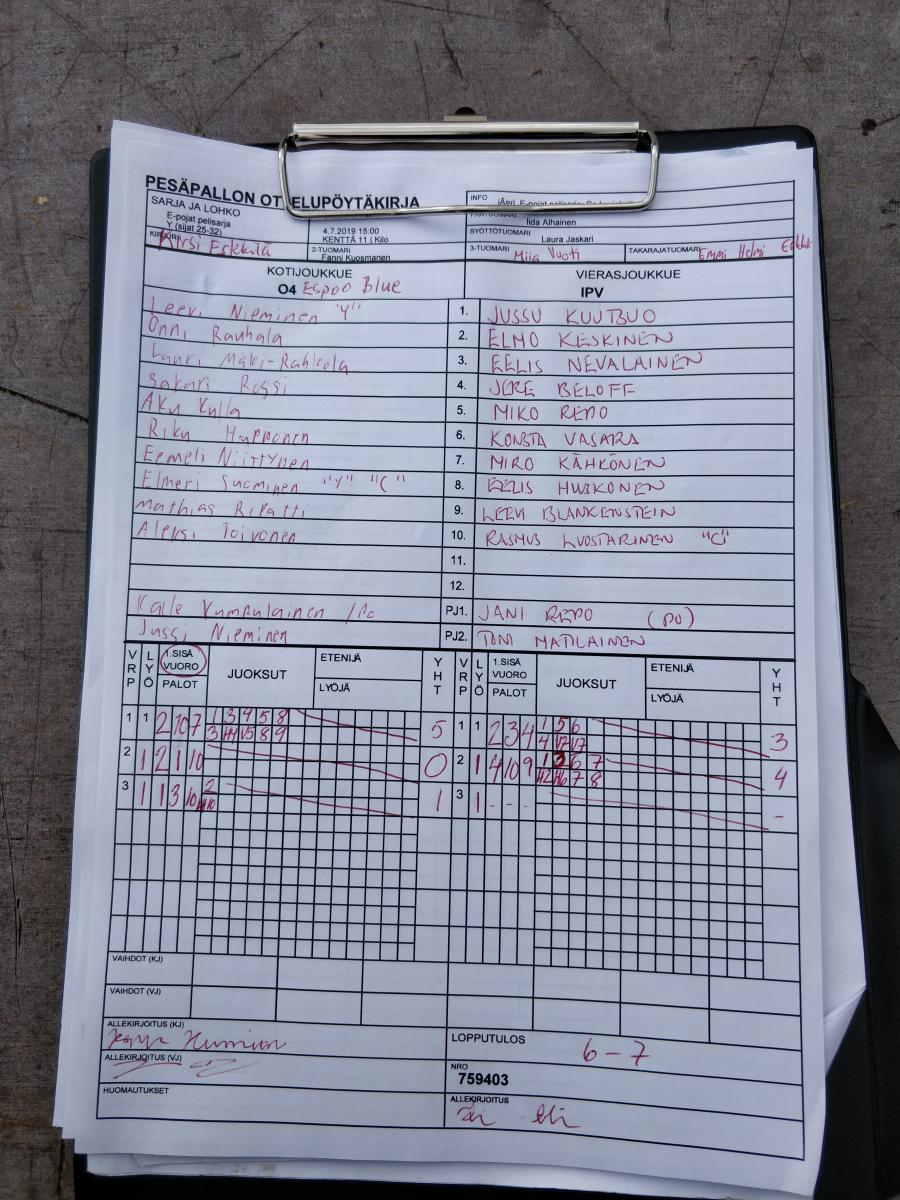 PESÄPALLON OTTELUPÖYTÄKIRJA
SARJA JA LOHKO
E-pojat pelisarja
Y (sijat 25-32)
4.7.2019 15:00
KENTTÄ 11 | Kilo
INFO
E-pojat pelisarja:
Iida Alhainen
SYÖTTÖTUOMARI
Laura Jaskari
KIRJURI
Kirsi Eskelä
2-TUOMARI
Fanni Kuosmanen
3-TUOMARI
Miia Vuoti
TAKARAJATUOMARI
Emmi Helmi
KOTIJOUKKUE
O4 Espoo Blue
VIERASJOUKKUE
IPV
Leevi Nieminen "Y" 1. JUSSU KUUTBUO
Onni Rauhala 2. ELMO KESKINEN
Lauri Mäki-Rahkola 3. EELIS NEVALAINEN
Sakari Rossi 4. JERE BELOFF
Aku Kylla 5. MIKO REPO
Riku Hypponen 6. KONSTA VASARA
Eemeli Niittynen 7. MIRO KÄHKÖNEN
Elmeri Suominen "Y" "C" 8. EELIS HUSKONEN
Mathias Ripatti 9. LEEVI BLANKENSTEIN
Aleksi Toivonen 10. RASMUS LUOSTARINEN "C"
11.
12.
Kalle Kumpulainen PJ1. JANI REPO (PO)
Jussi Nieminen PJ2. TONI MATILAINEN
VRP LYÖ 1.SISÄ VUORO PALOT JUOKSUT ETENIJÄ LYÖJÄ YHT VRP LYÖ 1.SISÄ VUORO PALOT JUOKSUT ETENIJÄ LYÖJÄ YHT
1 1 2 10 7 1 3 4 5 8 5 1 1 2 3 4 1 5 6 3
2 1 2 1 10 0 2 1 4 10 9 1 6 7 4
4 7 8
3 1 1 3 10 2 1 3 1 - - - -
VAIHDOT (KJ)
VAIHDOT (VJ)
ALLEKIRJOITUS (KJ)
ALLEKIRJOITUS (VJ)
HUOMAUTUKSET
LOPPUTULOS
6 - 7
NRO
759403
ALLEKIRJOITUS